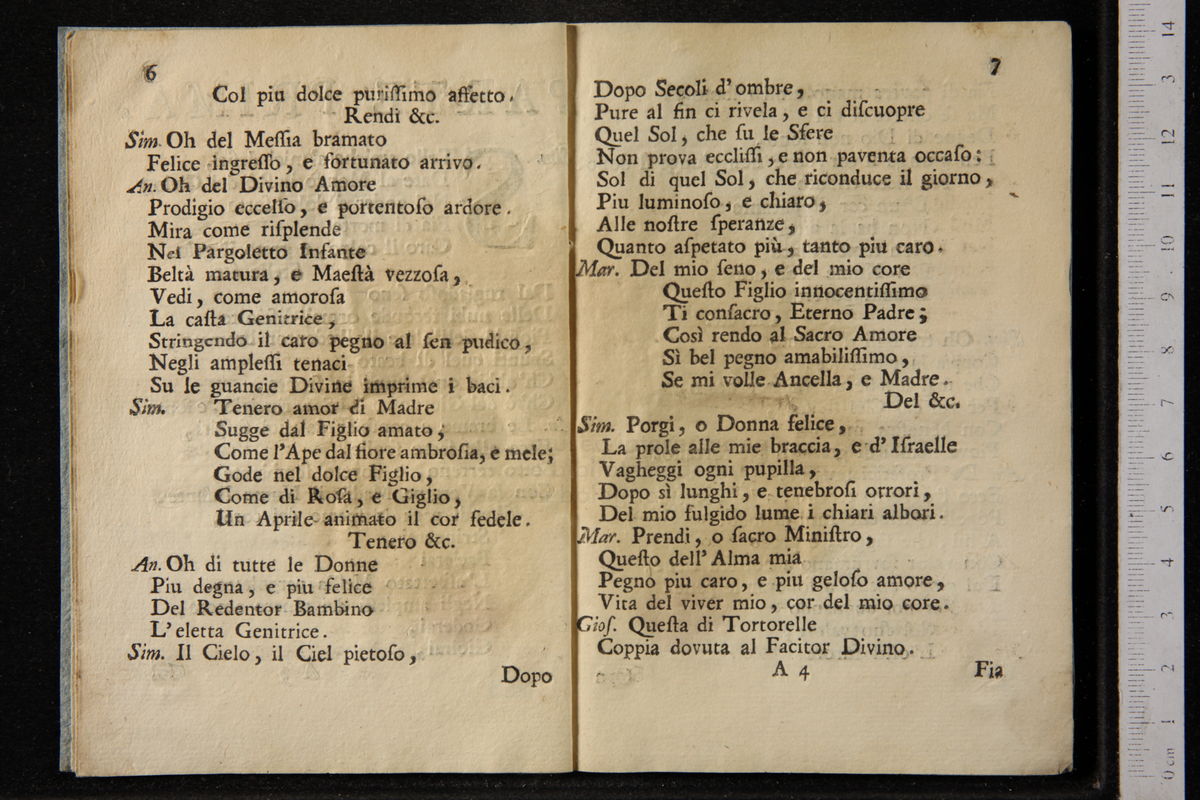 6
Col piu dolce puriſſimo affetto.
Rendi &c.
Sim. Oh del Meſſia bramato
Felice ingreſſo, e fortunato arrivo.
An. Oh del Divino Amore
Prodigio eccelſo, e portentoſo ardore.
Mira come riſplende
Nel Pargoletto Infante
Beltà matura, e Maeſtà vezzoſa,
Vedi, come amoroſa
La caſta Genitrice,
Stringendo il caro pegno al ſen pudico,
Negli ampleſſi tenaci
Su le guancie Divine imprime i baci.
Sim. Tenero amor di Madre
Sugge dal Figlio amato,
Come l'Ape dal fiore ambroſia, e mele;
Gode nel dolce Figlio,
Come di Roſa, e Giglio,
Un Aprile animato il cor fedele.
Tenero &c.
An. Oh di tutte le Donne
Piu degna, e più felice
Del Redentor Bambino
L'eletta Genitrice.
Sim. Il Cielo, il Ciel pietoſo,
Dopo
7
Dopo Secoli d'ombre,
Pure al fin ci rivela, e ci diſcuopre
Quel Sol, che ſu le Sfere
Non prova eccliſſi, e non paventa occaſo:
Sol di quel Sol, che riconduce il giorno,
Piu luminoſo, e chiaro,
Alle noſtre ſperanze,
Quanto aſpetato più, tanto piu caro.
Mar. Del mio ſeno, e del mio core
Queſto Figlio innocentiſſimo
Ti conſacro, Eterno Padre;
Così rendo al Sacro Amore
Sì bel pegno amabiliſſimo,
Se mi volle Ancella, e Madre.
Del &c.
Sim. Porgi, o Donna felice,
La prole alle mie braccia, e d'Iſraelle
Vagheggi ogni pupilla,
Dopo sì lunghi, e tenebroſi orrori,
Del mio fulgido lume i chiari albori.
Mar. Prendi, o ſacro Miniſtro,
Queſto dell'Alma mia
Pegno piu caro, e piu geloſo amore,
Vita del viver mio, cor del mio core.
Gioſ. Queſta di Tortorelle
Coppia dovuta al Facitor Divino.
A 4
Fia
0 cm 1 2 3 4 5 6 7 8 9 10 11 12 13 14